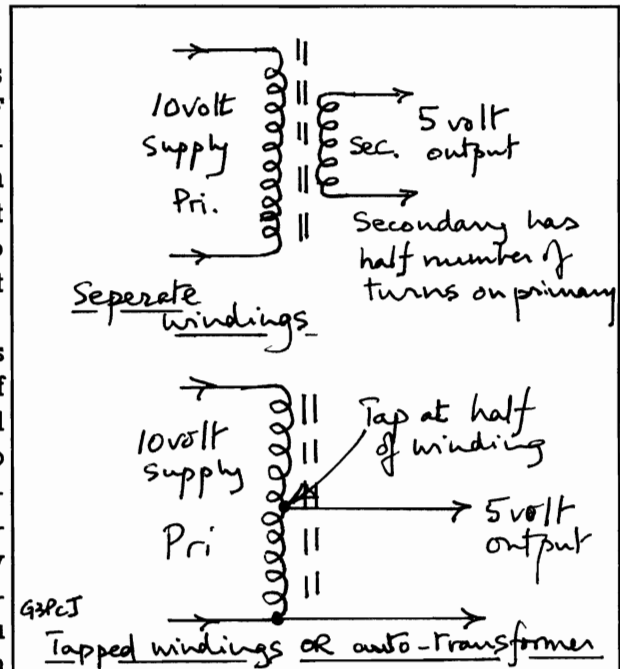 10volt
Supply
Pri.
Sec.
5 volt
output
Secondary has
half number of
turns on primary
Seperate
windings
10volt
Supply
Pri
Tap at half
of winding
5volt
output
G3PCJ
Tapped windings OR auto-transformer